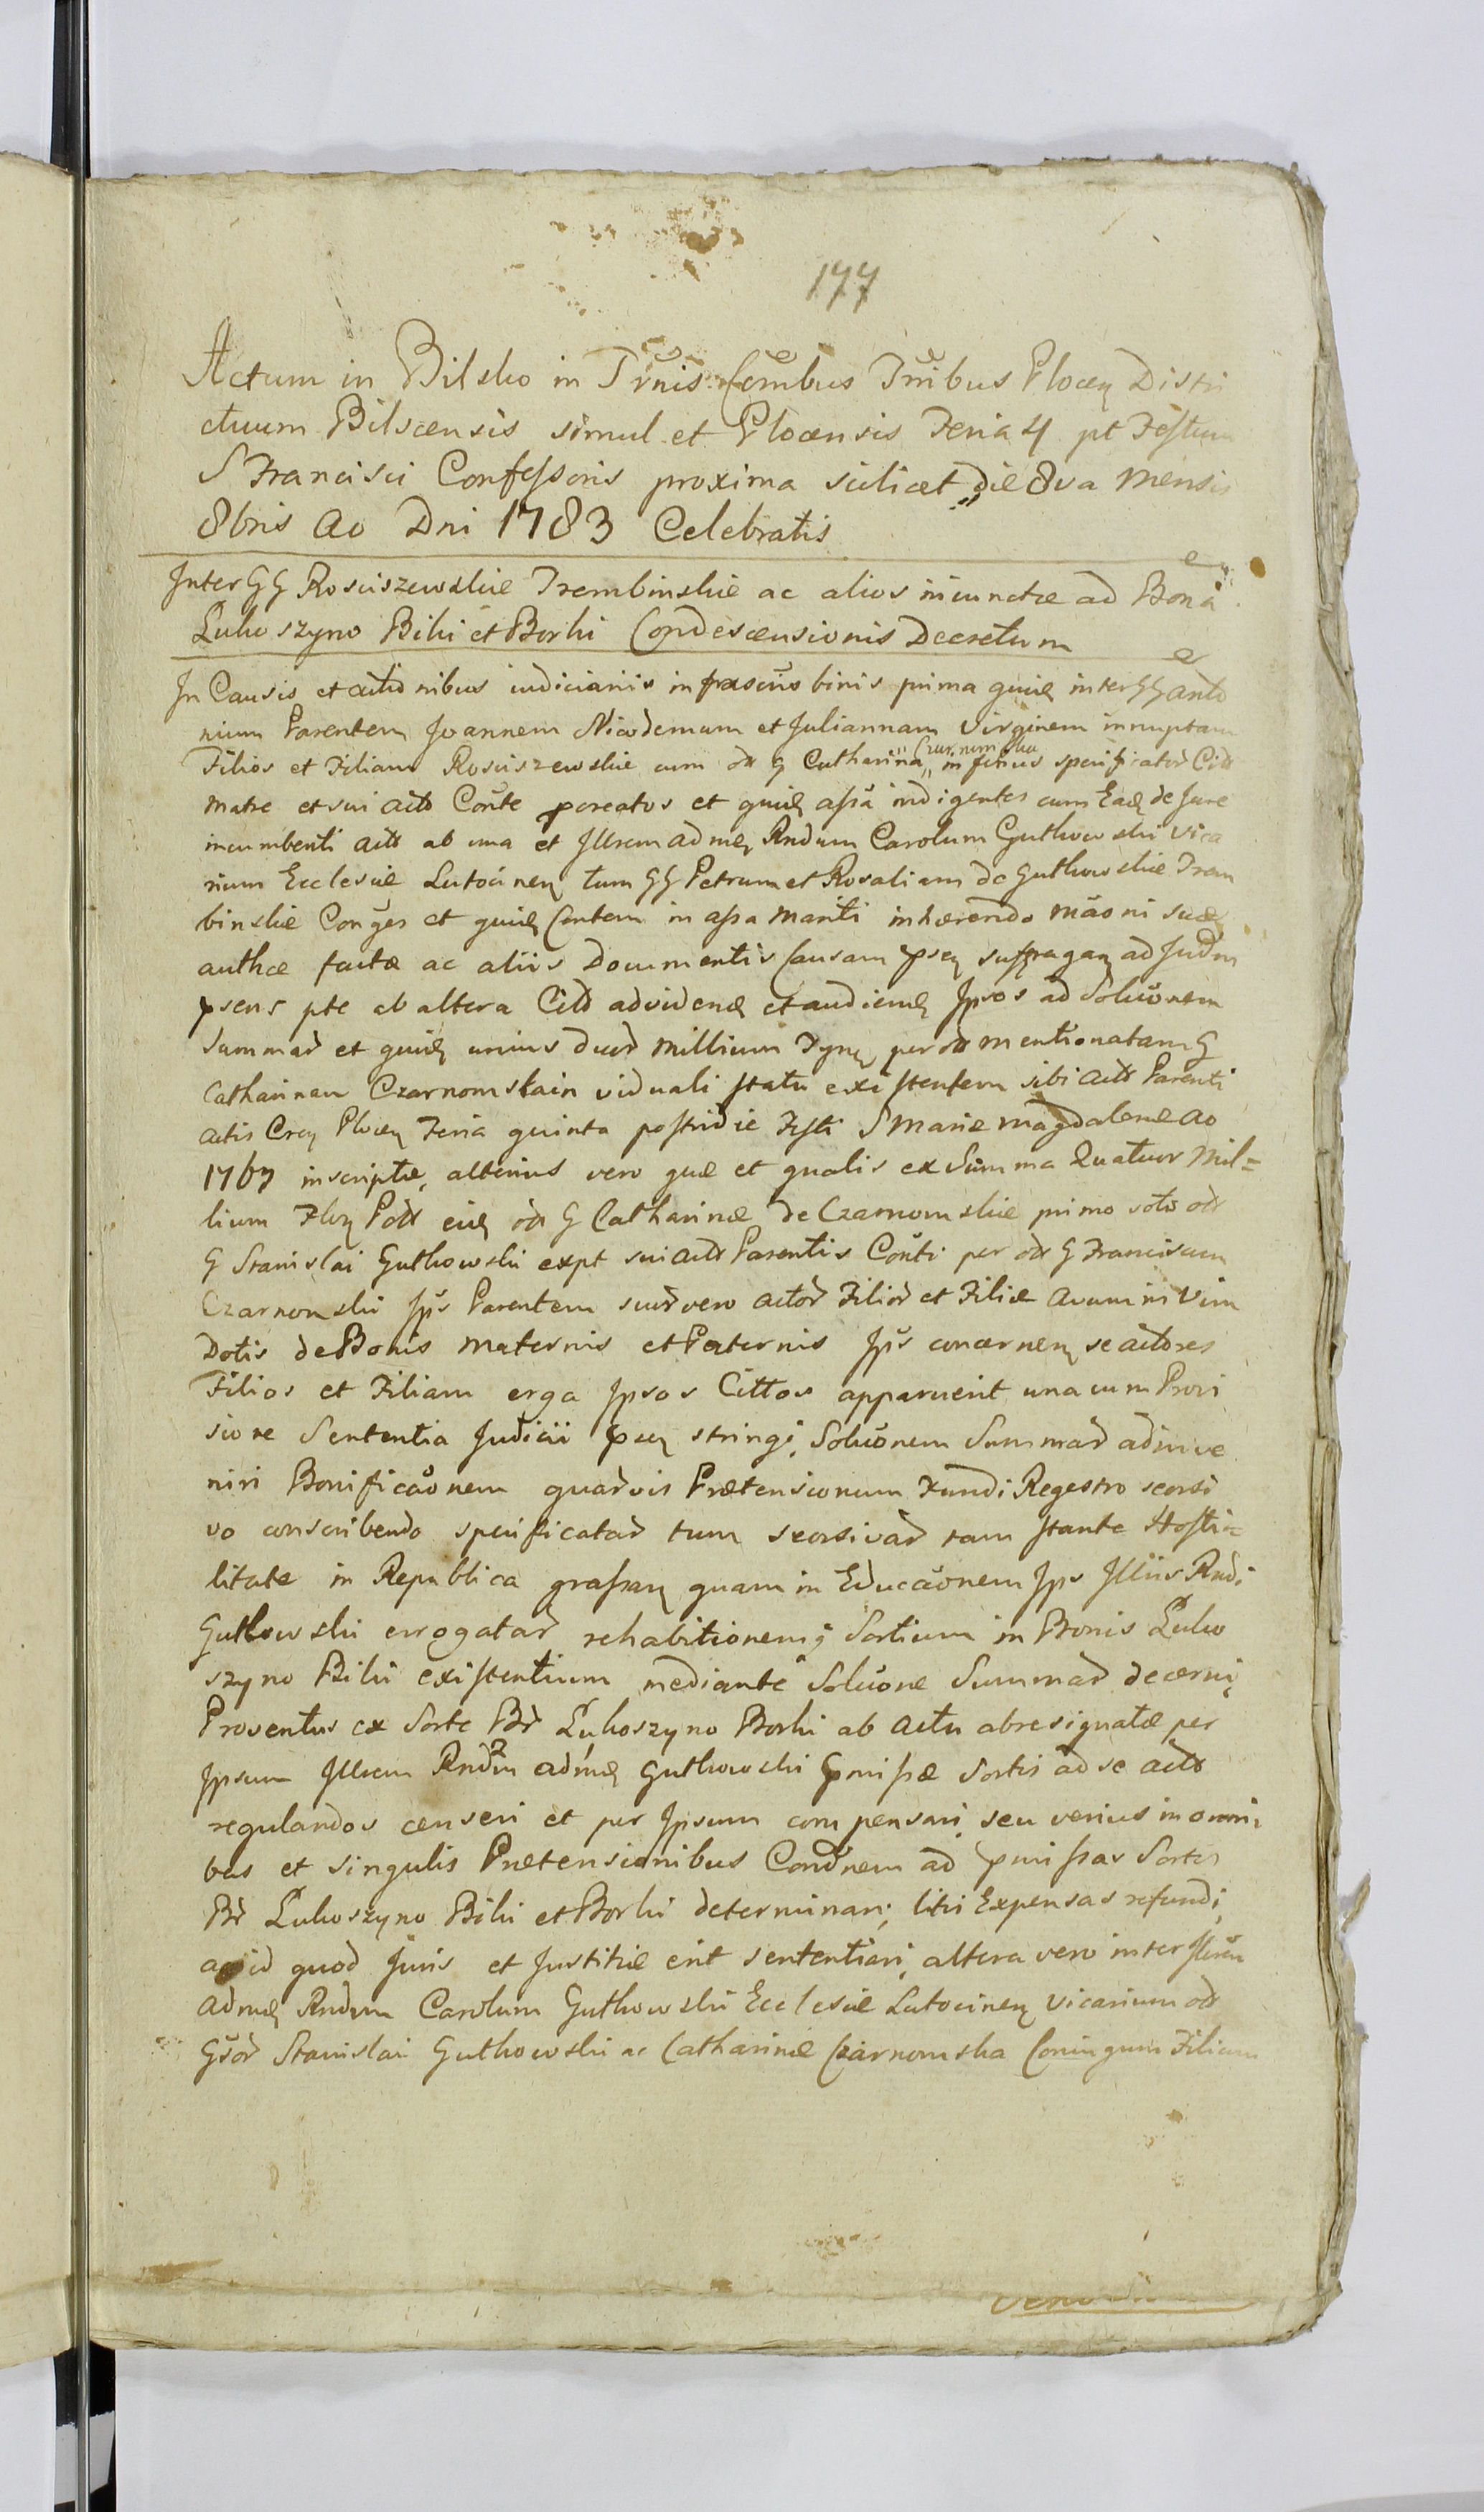 177
Actum in Bilsko in Trnis Cernibus Trribus Plocen Distri
ctuum Bilscensis simul et Plocensis Feria 4 pt Festum
S Francisci Confessoris proxima scilicet die 8va Mensis
8bris Ao Dni 1783 Celebratis
Inter GG Rosciszewskie Trembinskie ac alios iniunctæ ad Bona
Lukoszyno Biki et Borki Condescensionis Decretum
In Causis et actionibus iudiciariis infrascris binis prima quidem inter GG Anto
nium Parentem Joannem Nicodemum et Juliannam Virginem innuptam
Filios et Filiam Rosciszewskie cum olt G Catharina Czarnomska inferius specificator Citt
Matre et sui actt Conte procreatos et quidem assa indigentes cum Eadem de Jure
incumbenti actt ab una et Illrem admem Rndum Carolum Gutkowski Vica
rium Ecclesiæ Lutocinen tum GG Petrum et Rosaliam de Gutkowskie Trem
binskie Conges et quidem Contem in assa Mariti inhærendo mãoni suæ
authcæ factæ ac aliis Documentis Causam psen suffragan ad Judm
psens pte ab altera Citt ad videnm et audienm Ipsos ad Soluonem
Summar et quidem unius duor Millium Tynf per olt mentionatam G
Catharinam Czarnomska in viduali statu existentem sibi actt Parenti
actis Cren Plocen Feria quinta postridie Festi S Mariæ Magdalenæ Ao
1767 inscriptæ, alterius vero quæ et qualis ex Summa Quatuor Mil=
lium Flor Poltt eidem olt G Catharinæ de Czarnomskie primo voto olt
G Stanislai Gutkowski expt sui actt Parentis Conti per olt G Franciscum
Czarnomski Ips Parentem suor vero actor Filior et Filiæ Avum in Vim
Dotis de Bonis Maternis et Paternis Ips concernen se actores
Filios et Filiam erga Ipsos Cittos apparuerit una cum Provi
sione Sententia Judicii psen stringi, Soluonem Summar adinve
niri Bonificãonem quarvis Prætensionum Fundi Regestro seorsi
vo conscribendo specificatar tum seorsivar tam stante Hosti=
litate in Republica grassan quam in Educãonem Ips Illris Rndi
Gutkowski errogatar rehabitionemq Sortium in Bonis Luko
szyno Biki existentium mediante Soluone Summar decerni
Proventus ex Sorte Br Lukoszyno Borki ab actu abresignatæ per
Ipsum Illrem Rndm admem Gutkowski pmissæ Sortis ad se actt
regulandos censeri et per Ipsum compensari, seu verius in omni
bus et singulis Prætensionibus Condnem ad pmissas Sortes
Br Lukoszyno Biki et Borki determinari, litis Expensas refundi
ac id quod Juris et Justitiæ erit sententiari, altera vero inter Illrem
admem Rndum Carolum Gutkowski Ecclesiæ Lutocinen Vicarium olt
Gsor Stanislai Gutkowski ac Catharinæ Czarnomska Coniugum Filium